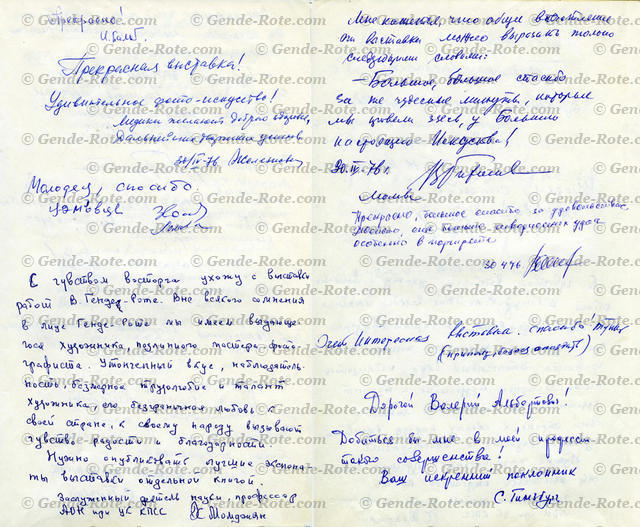 Прекрасно!
Прекрасная выставка!
Удивительное фото-искусство!
Медики желают доброго
Дальнейших успехов
30/IV-76
Молодец, спасибо.
С чувством восторга ухожу с выставки
работ В. Генде-Роте. Вне всякого сомнения
в лице Генде-Роте мы имеем выдающе-
гося художника, подлинного мастера фото-
графиста. Утонченный вкус, наблюдатель-
ность, безмерное трудолюбие и талант
художника, его безграничная любовь к
своей стране, к своему народу вызывают
чувства радости и благодарности.
Нужно опубликовать лучшие экспона-
ты выставки отдельной книгой.
Заслуженный деятель науки профессор
АОН при ЦК КПСС
Мне кажется, что общее впечатление
от выставки можно выразить только
следующими словами:
— Большое, большое спасибо
за те чудесные минуты, которые
мы провели здесь, у большого
настоящего Искусства!
30.IV-76г.
Москва
Прекрасно, большое спасибо за удовольствие
особенно в портрете
30 4 76
Очень интересная выставка. Спасибо!
Дорогой Валерий Альбертович!
Добиться бы мне в моей профессии
такого совершенства!
Ваш искренний поклонник
С.
© Gende-Rote.com